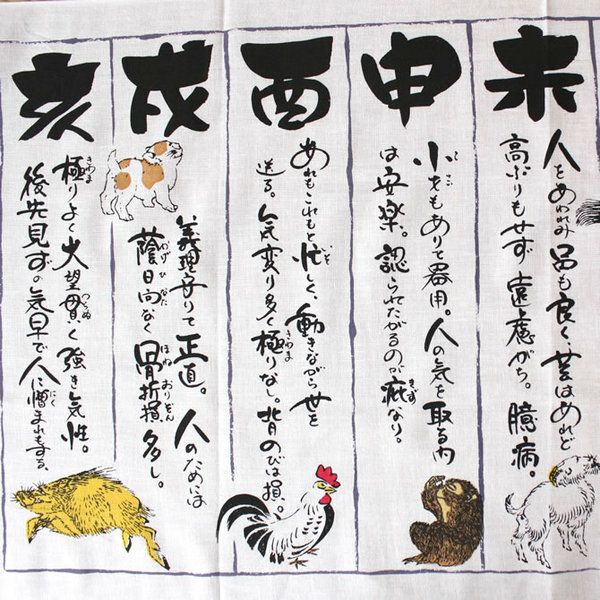 未
人をあわれみ 品も良く、芸はあれど
高ぶりもせず 遠慮がち。臆病。
申
小才もありて器用。人の気を取る内
は安楽。認られたがるのが疵なり。
酉
あれもこれもと忙しく、動きながら世を
送る。気変り多く極りなし。背のびは損。
戌
義理守りて正直。人のためには
蔭日向なく骨折損多し。
亥
極りよく大望貫く強き気性。
後先見ずの気早で人に憎まれもする。